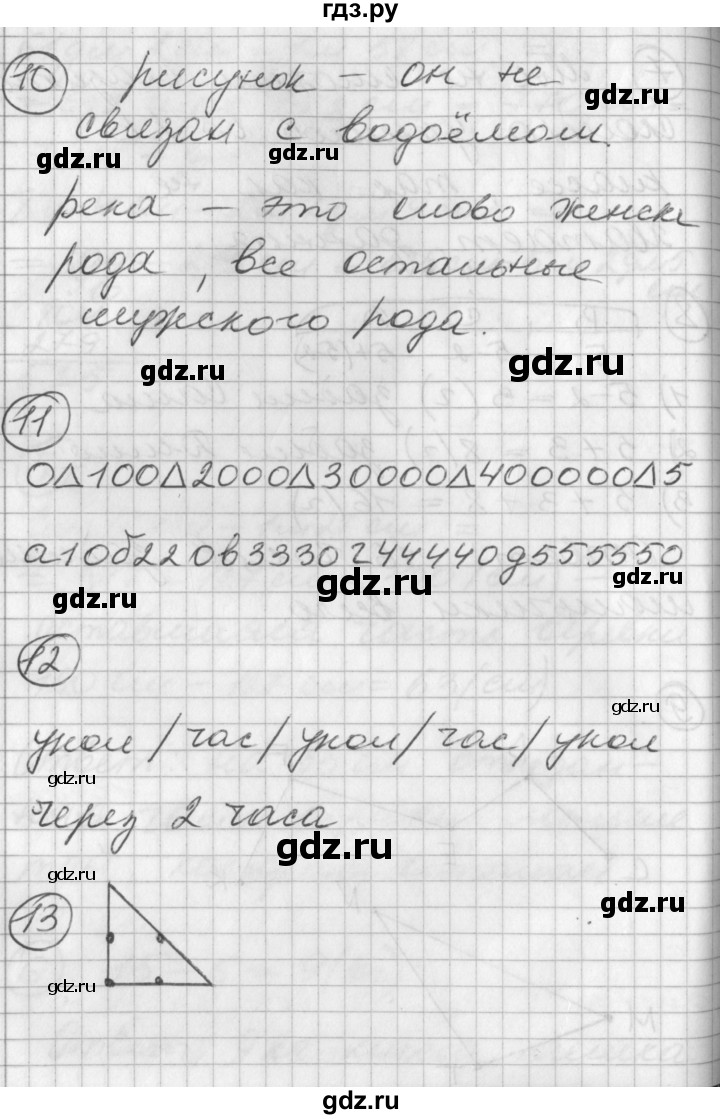 гдз.ру
10 рисунок – он не
gdz.ru
связан с водоёмом.
gdz.ru gdz.ru
река – это слово женск
рода, все остальные
мужского рода.
gdz.ru gdz.ru
11
О△1ОО△2ООО△3ОООО△4ООООО△5
а10б220в3330г44440д555550
gdz.ru gdz.ru gdz.ru
12
gdz.ru
укол / час / укол / час / укол
gdz.ru
через 2 часа
gdz.ru
gdz.ru
13
gdz.ru
gdz.ru
gdz.ru